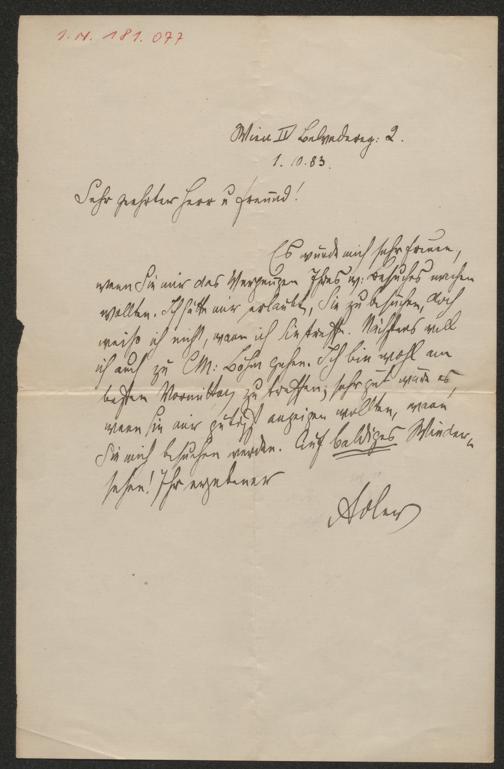 I. N. 181.077
Wien IV Belvedereg: 2.
1.10.83.
Sehr geehrter Herr u Freund!
Es würde mich sehr freuen,
wenn Sie mir das Vergnügen Ihres w: Besuches machen
wollten. Ich hätte mir erlaubt, Sie zu besuchen, doch
weiß ich nicht, wann ich Sie treffe. Nächstens will
ich auch zu CM: Böhm gehen. Ich bin wohl am
besten Vormittag zu treffen; sehr gut wäre es,
wenn Sie mir gütigst anzeigen wollten, wann
Sie mich besuchen werden. Auf baldiges Wieder-
sehen! Ihr ergebener
Adler